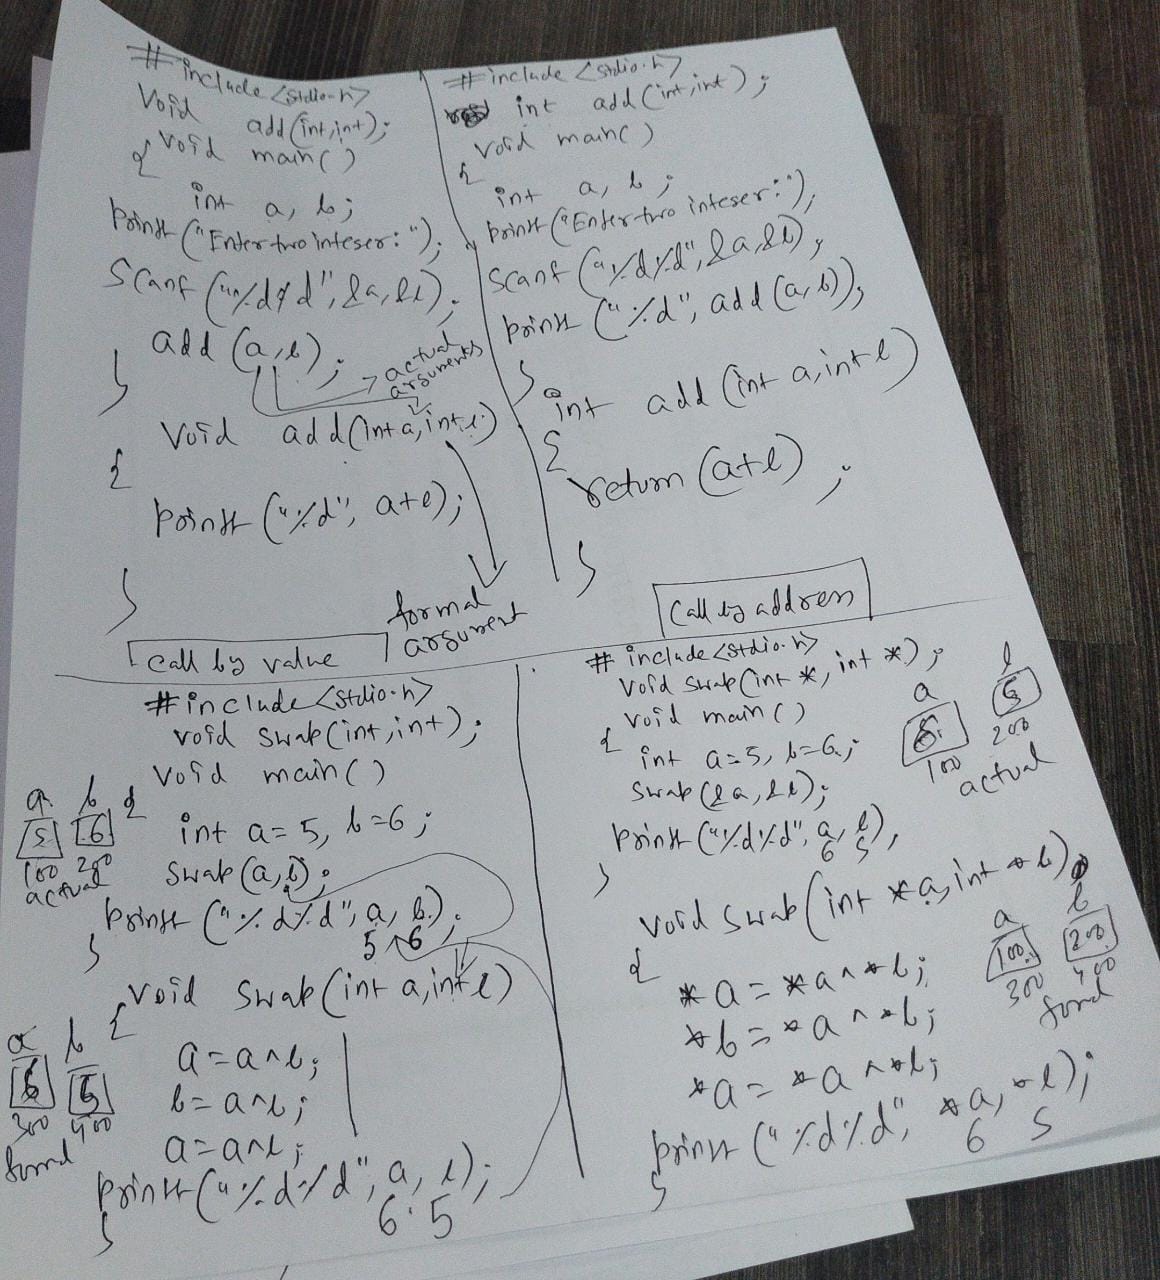 #include <stdio.h>
void add(int,int);
void main()
{
int a, b;
printf("Enter two integer:");
scanf("%d%d", &a, &b);
add (a,b);
actual
arguments
}
void add(int a, int b)
{
printf("%d", a+b);
}
formal
argument
#include <stdio.h>
int add(int,int);
void main()
{
int a, b;
printf("Enter two integer:");
scanf("%d%d", &a, &b);
printf("%d", add (a,b));
}
int add (int a, int b)
{
return (a+b);
}
call by value
#include <stdio.h>
void swap(int,int);
void main()
{
int a=5, b=6;
swap(a,b);
printf("%d%d", a, b);
5 6
}
a b
5 6
100 200
actual
void swap(int a, int b)
{
a=a^b;
b=a^b;
a=a^b;
printf("%d%d", a, b);
6 5
}
a b
6 5
300 400
formal
call by address
#include <stdio.h>
void swap(int *, int *);
void main()
{
int a=5, b=6;
swap(&a, &b);
printf("%d%d", a, b);
6 5
}
a b
5
100 200
actual
void swap(int *a, int *b)
{
*a = *a ^ *b;
*b = *a ^ *b;
*a = *a ^ *b;
printf("%d%d", *a, *b);
6 5
}
a b
100 200
300 400
formal